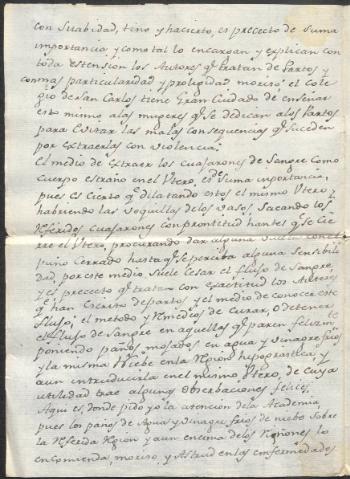 con Suabidad, tino y hacierto, es preceto de Suma
importancia y como tal lo encargan y explican con
toda estension los Autores qe tratan de Partos y
con mas particularidad y prolijidad
gio de San Carlos tiene Gran Ciudado de enseñar
esto mismo alas mugeres qe Se dedican alos Partos
para Evitar las malas consequencias qe Suceden
por Extraerlas con violencia.
El medio de Extraer los Cuajarones de Sangre como
Cuerpo estraño en el Utero, es de Suma importancia,
pues es Cierto qe dilatando estos el mismo Utero y
habriendo las boquillas de los vasos, Sacando los
Referidos cuajarones con prontitud hantes qe Se Cie
rre el Utero, procurando dar alguna
puño Cerrado hasta qe Se perciba alguna Sensibili
dad, por este medio Suele Cesar el flujo de Sangre
y es preceto qe tratan con exactitud los Autores
qe han Escrito de partos y el medio de conocer este
flujo, el metodo y Remedios de Curar, o detener
el flujo de Sangre en aquellas qe paren felizmte
poniendo paños mojados en agua y vinagre frios
y la misma Niebe en la Rejion hipogastrica, y
aun introducirla en el mismo Utero, de Cuya
utilidad trae algunas Observaciones felices.
Aqui es, donde pido yo la atencion de la Academia,
pues los paños de Agua y Vinagre, frios de niebe Sobre
la Referida Rejion y aun encima de los Riñones lo
encomienda, en las enfermedades